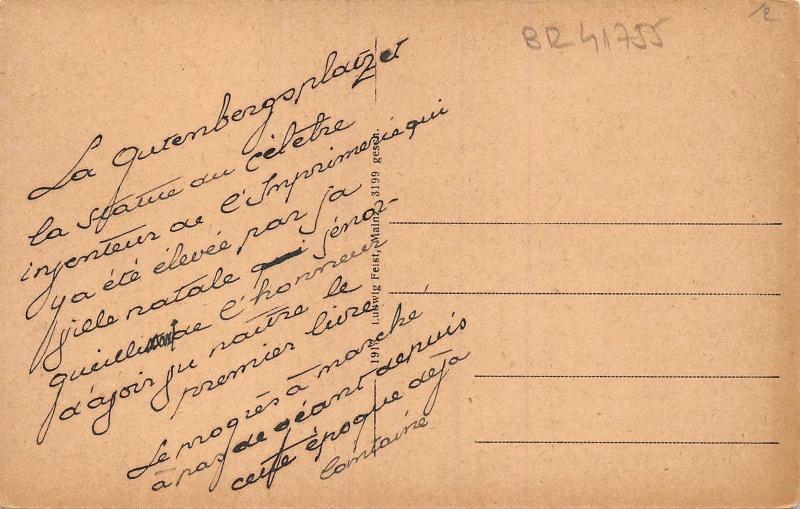 BR 41755
La Gutenbergsplatz et
la statue du célèbre
inventeur de l'Imprimerie qui
y a été élevée par sa
ville natale qui s'énor-
gueilli de l'honneur
d'avoir vu naître le
premier livre.
Le progrès à marché
à pas de géant depuis
cette époque déjà
lointaine
Ludwig Feist, Mainz 3199 gesch.